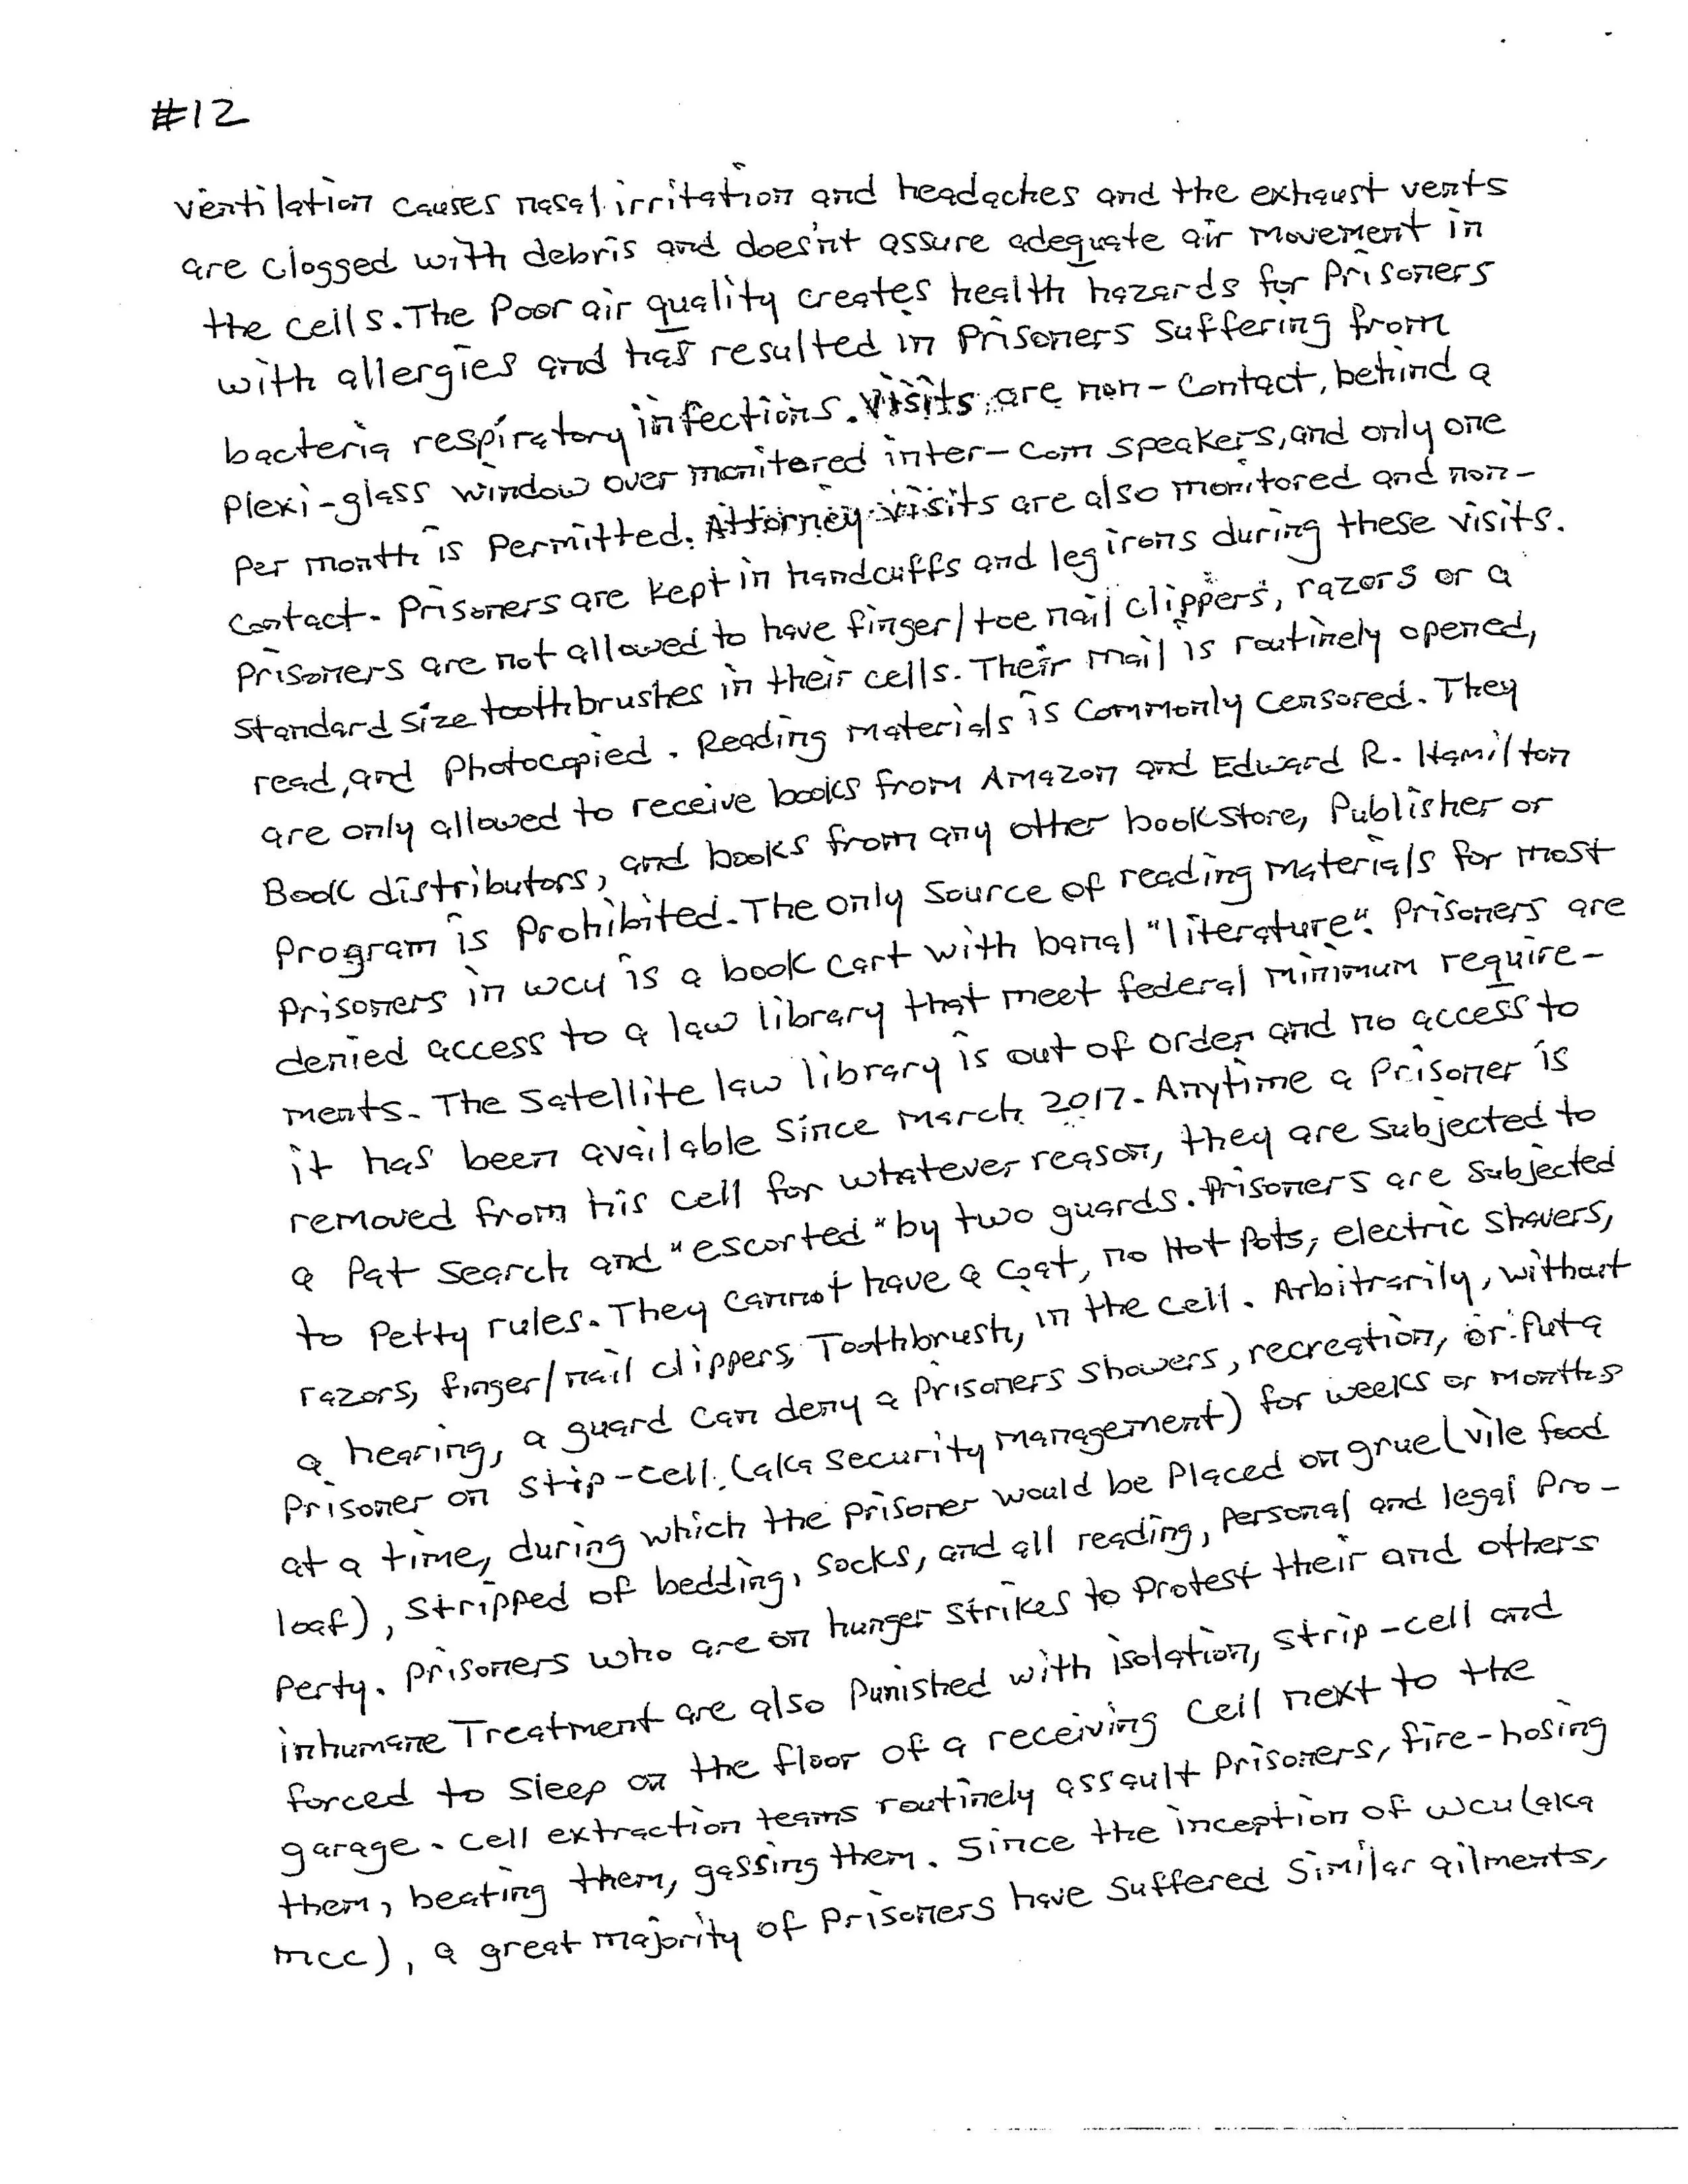 #12
ventilation causes nasal irritation and headaches and the exhaust vents
are clogged with debris and does'nt assure adequate air movement in
the cells. The Poor air quality creates health hazards for Prisoners
with allergies and has resulted in Prisoners suffering from
bacteria respiratory infections. Visits are non-contact, behind a
Plexi-glass window over monitored inter-com speakers, and only one
Per month is Permitted. Attorney visits are also monitored and non-
contact. Prisoners are kept in handcuffs and leg irons during these visits.
Prisoners are not allowed to have finger/toe nail clippers, razors or a
standard size toothbrushes in their cells. Their mail is routinely opened,
read, and Photocopied. Reading materials is Commonly Censored. They
are only allowed to receive books from Amazon and Edward R. Hamilton
Book distributors, and books from any other bookstore, Publisher or
Program is Prohibited. The only source of reading materials for most
Prisoners in WCU is a book cart with banal "literature". Prisoners are
denied access to a law library that meet federal minimum require-
ments. The Satellite law library is out of order and no access to
it has been available since march 2017. Anytime a Prisoner is
removed from his cell for whatever reason, they are subjected to
a Pat search and "escorted" by two guards. Prisoners are subjected
to Petty rules. They cannot have a coat, no Hot Pots, electric shavers,
razors, finger/nail clippers, Toothbrush, in the cell. Arbitrarily, without
a hearing, a guard can deny a Prisoners showers, recreation, or Put a
Prisoner on stip-cell. (aka security management) for weeks or months
at a time, during which the Prisoner would be Placed on gruel (vile food
loaf), stripped of bedding, socks, and all reading, Personal and legal Pro-
Perty. Prisoners who are on hunger strikes to Protest their and others
inhumane Treatment are also Punished with isolation, strip-cell and
forced to sleep on the floor of a receiving cell next to the
garage. Cell extraction teams routinely assault Prisoners, fire-hosing
them, beating them, gassing them. Since the inception of WCU (aka
mcc), a great majority of Prisoners have suffered similar ailments,